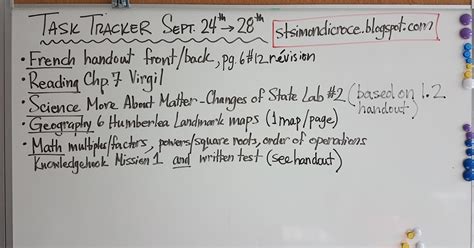 TASK TRACKER SEPT. 24th → 28th
stsimondicroce.blogspot.com
• French handout front/back, pg. 6 #12 révision
• Reading Chp. 7 Virgil
• Science More About Matter - Changes of State Lab #2 (based on 1.2 handout)
• Geography 6 Humberlea Landmark maps (1 map/page)
• Math multiples/factors, powers/square roots, order of operations
Knowledgehook Mission 1 and written test (see handout)